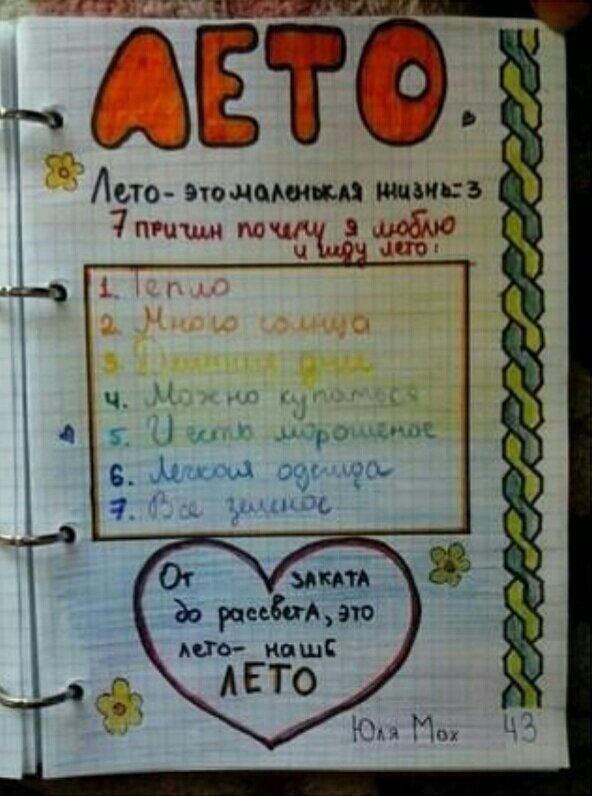 ЛЕТО
Лето - это маленькая жизнь = 3
7 причин почему я люблю
и жду лето:
1. Тепло
2. Много солнца
3. Длинные дни
4. Можно купаться
5. И есть мороженое
6. Легкая одежда
7. Все зеленое
От ЗАКАТА
до рассвета, это
лето - наше
ЛЕТО
Юля Мох 43